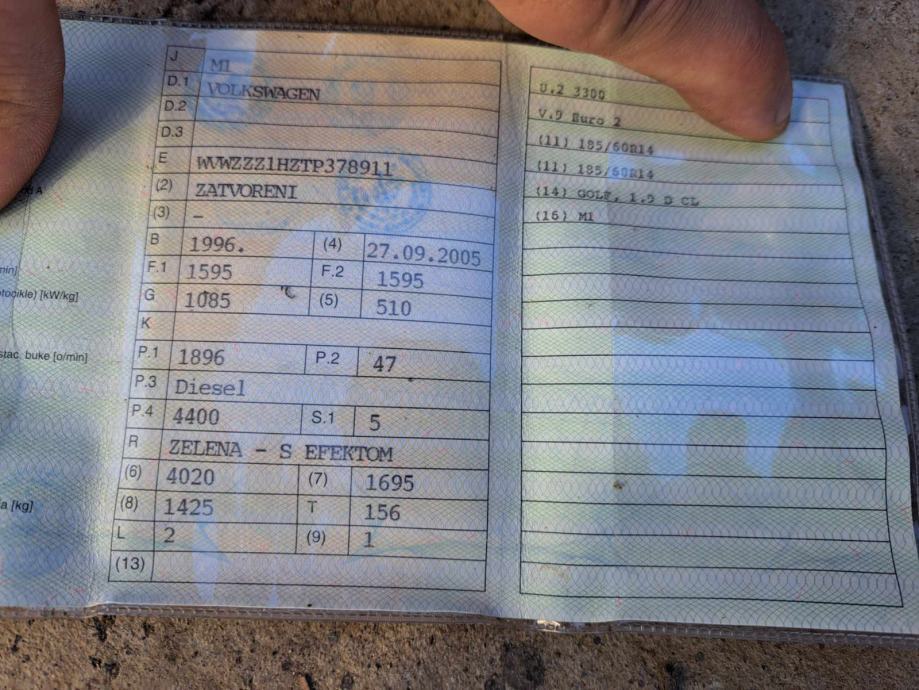 J M1
D.1 VOLKSWAGEN
D.2
D.3
E WVWZZZ1HZTP378911
(2) ZATVORENI
(3) –
B 1996. (4) 27.09.2005
F.1 1595 F.2 1595
G 1085 (5) 510
K
P.1 1896 P.2 47
P.3 Diesel
P.4 4400 S.1 5
R ZELENA – S EFEKTOM
(6) 4020 (7) 1695
(8) 1425 T 156
L 2 (9) 1
(13)
U.2 3300
V.9 Euro 2
(11) 185/60R14
(11) 185/60R14
(14) GOLF, 1.9 D CL
(16) M1
A
min]
[kW/kg]
stac. buke [o/min]
a [kg]